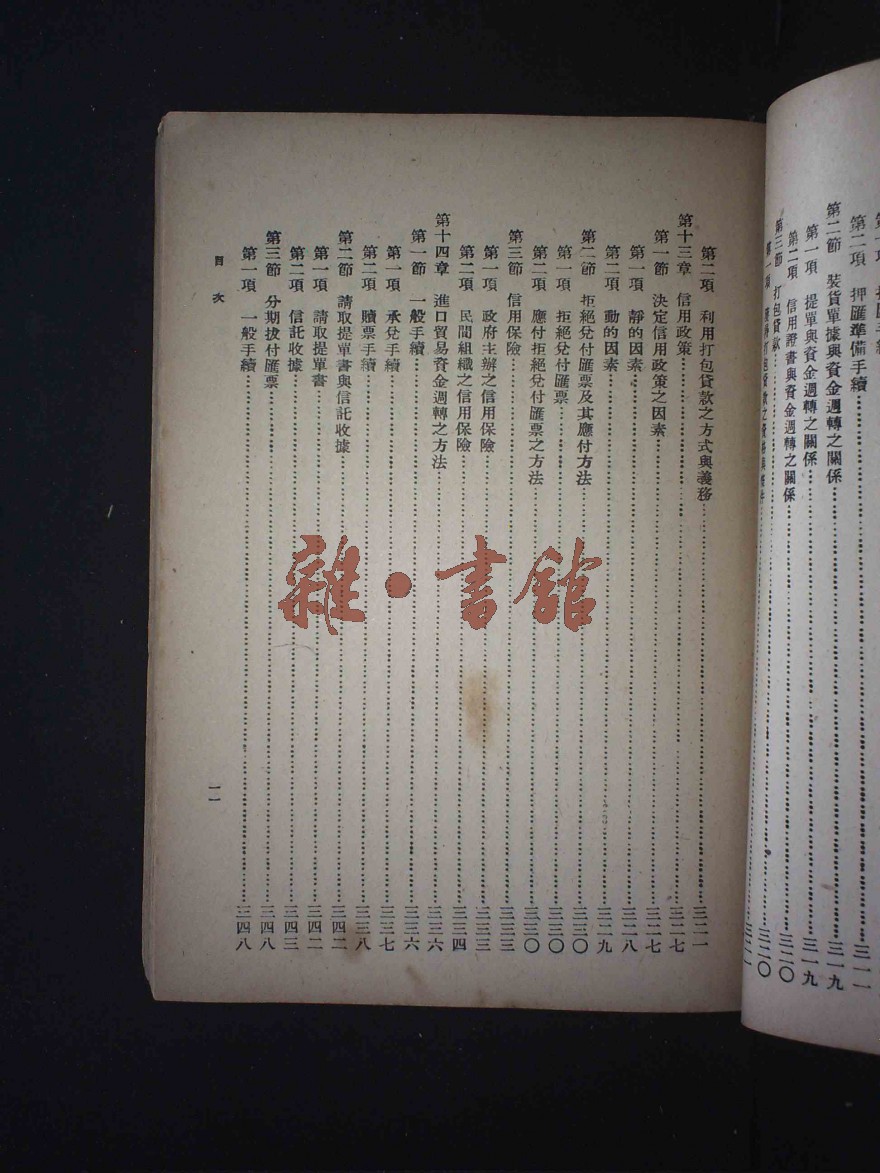 押匯準備手續……三一一
第二節 裝貨單據與資金週轉之關係……三一九
第一項 提單與資金週轉之關係……三一九
第二項 信用證書與資金週轉之關係……三二〇
第三節 打包貸款……三二〇
第二項 利用打包貸款之方式與義務……三二一
第十三章 信用政策……三二七
第一節 決定信用政策之因素……三二七
第一項 靜的因素……三二八
第二項 動的因素……三二九
第二節 拒絕兌付匯票及其應付方法……三三〇
第一項 拒絕兌付匯票……三三〇
第二項 應付拒絕兌付匯票之方法……三三〇
第三節 信用保險……三三三
第一項 政府主辦之信用保險……三三三
第二項 民間組織之信用保險……三三四
第十四章 進口貿易資金週轉之方法……三三六
第一節 一般手續……三三六
第一項 承兌手續……三三七
第二項 贖票手續……三三八
第二節 請取提單書與信託收據……三四二
第一項 請取提單書……三四二
第二項 信託收據……三四三
第三節 分期拔付匯票……三四八
第一項 一般手續……三四八
目次
一一
雜·書館